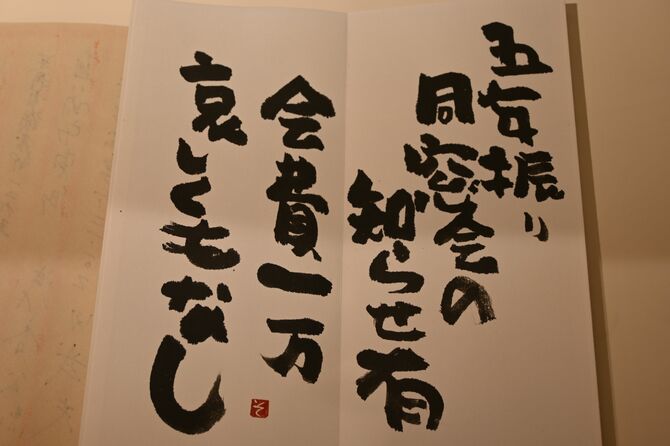 五年振り
同窓会の
知らせ有
会費一万
哀しくもなし
そ